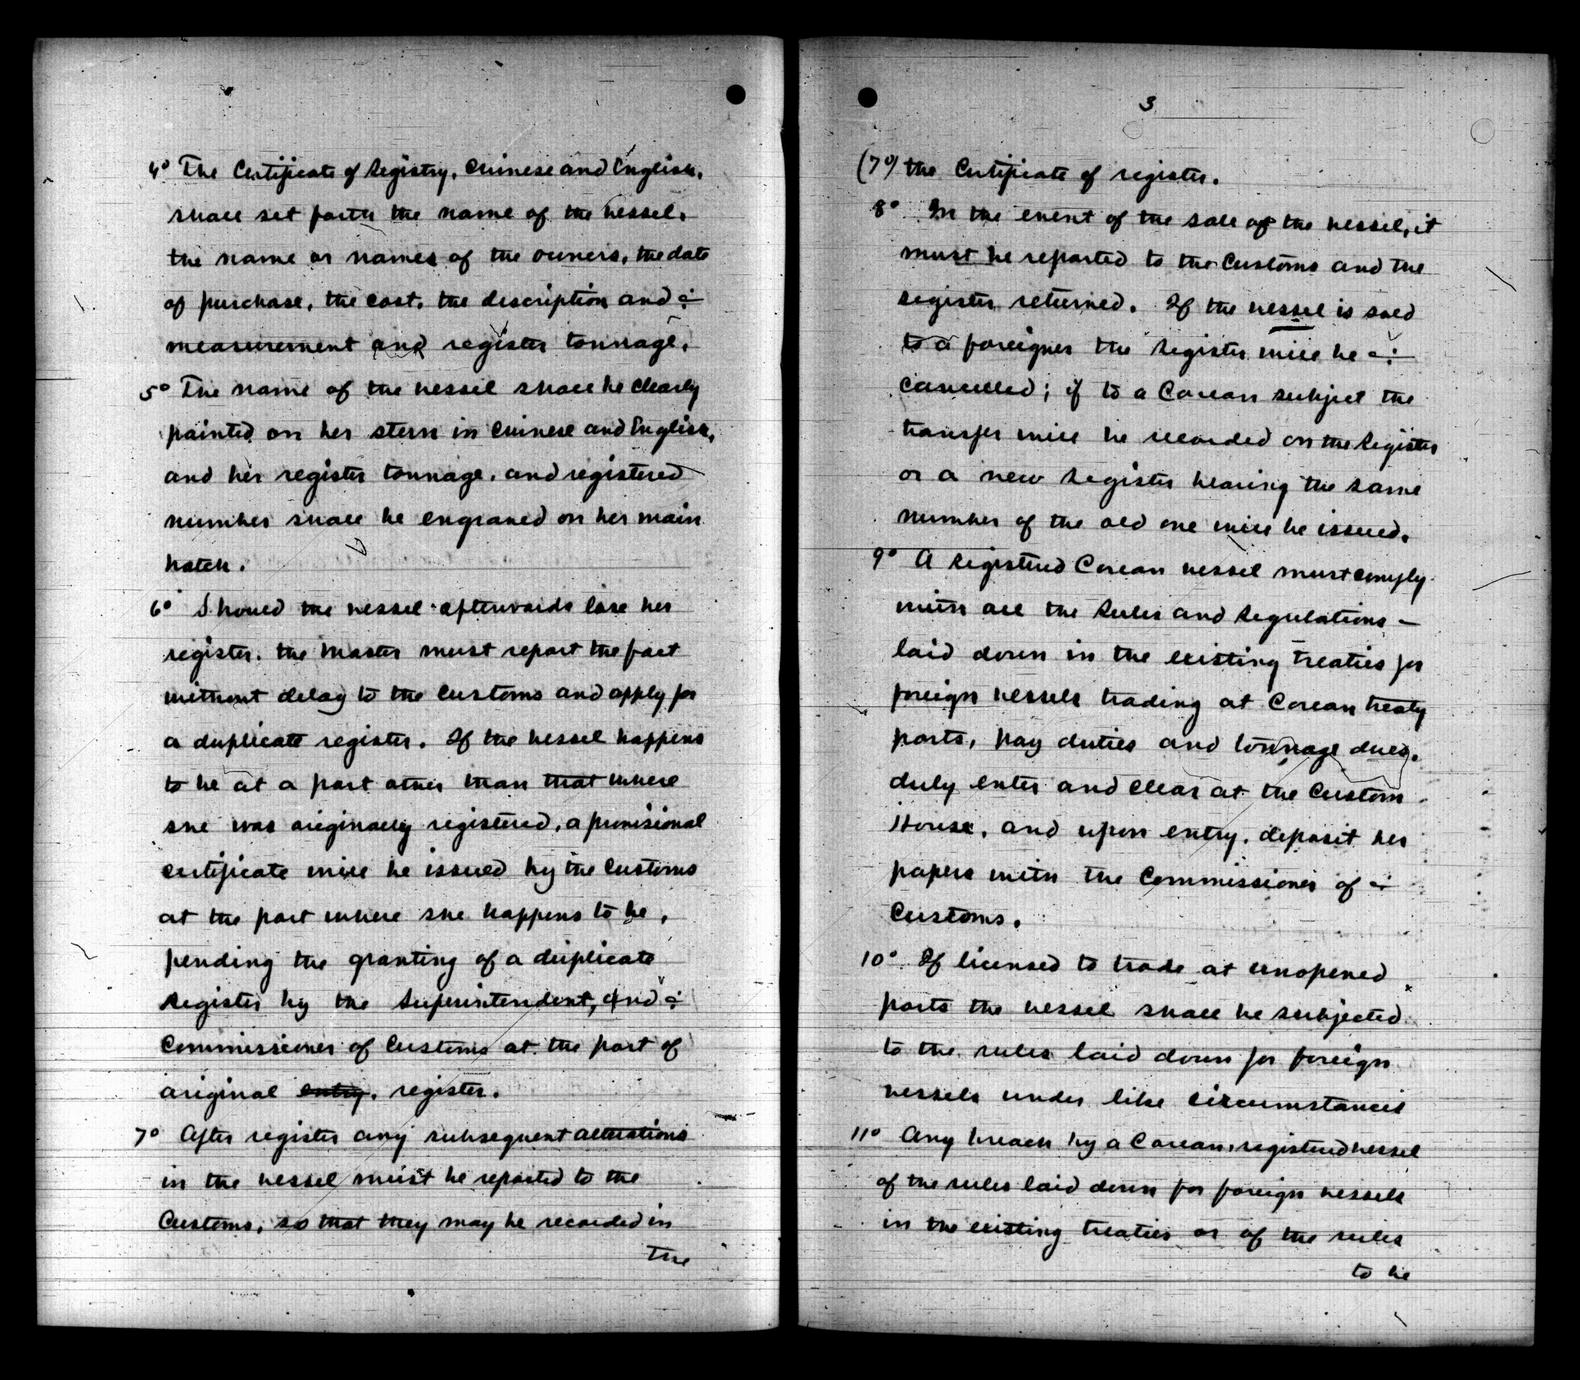 4° The Certificate of Registry, Chinese and English,
shall set forth the name of the vessel,
the name or names of the owners, the date
of purchase, the cost, the description and
measurement and register tonnage.
5° The name of the vessel shall be clearly
painted on her stern in Chinese and English,
and her register tonnage, and registered
number shall be engraved on her main
hatch.
6° Should the vessel afterwards lose her
register, the Master must report the fact
without delay to the Customs and apply for
a duplicate register. If the vessel happens
to be at a port other than that where
she was originally registered, a provisional
certificate will be issued by the Customs
at the port where she happens to be,
pending the granting of a duplicate
Register by the Superintendent, and
Commissioner of Customs at the port of
original entry, register.
7° After register any subsequent alterations
in the vessel must be reported to the
Customs, so that they may be recorded in
The
3
(7°) the Certificate of register.
8° In the event of the sale of the vessel, it
must be reported to the Customs and the
register returned. If the vessel is sold
to a foreigner the Register will be
cancelled; if to a Corean subject the
transfer will be recorded on the Register
or a new Register bearing the same
number of the old one will be issued.
9° A Registered Corean vessel must comply
with all the Rules and Regulations —
laid down in the existing treaties for
foreign vessels trading at Corean treaty
ports, pay duties and tonnage dues,
duly enter and clear at the Custom
House, and upon entry, deposit her
papers with the Commissioner of
Customs.
10° If licensed to trade at unopened
ports the vessel shall be subjected
to the rules laid down for foreign
vessels under like circumstances
11° Any breach by a Corean, registered vessel
of the rules laid down for foreign vessels
in the existing treaties or of the rules
to be